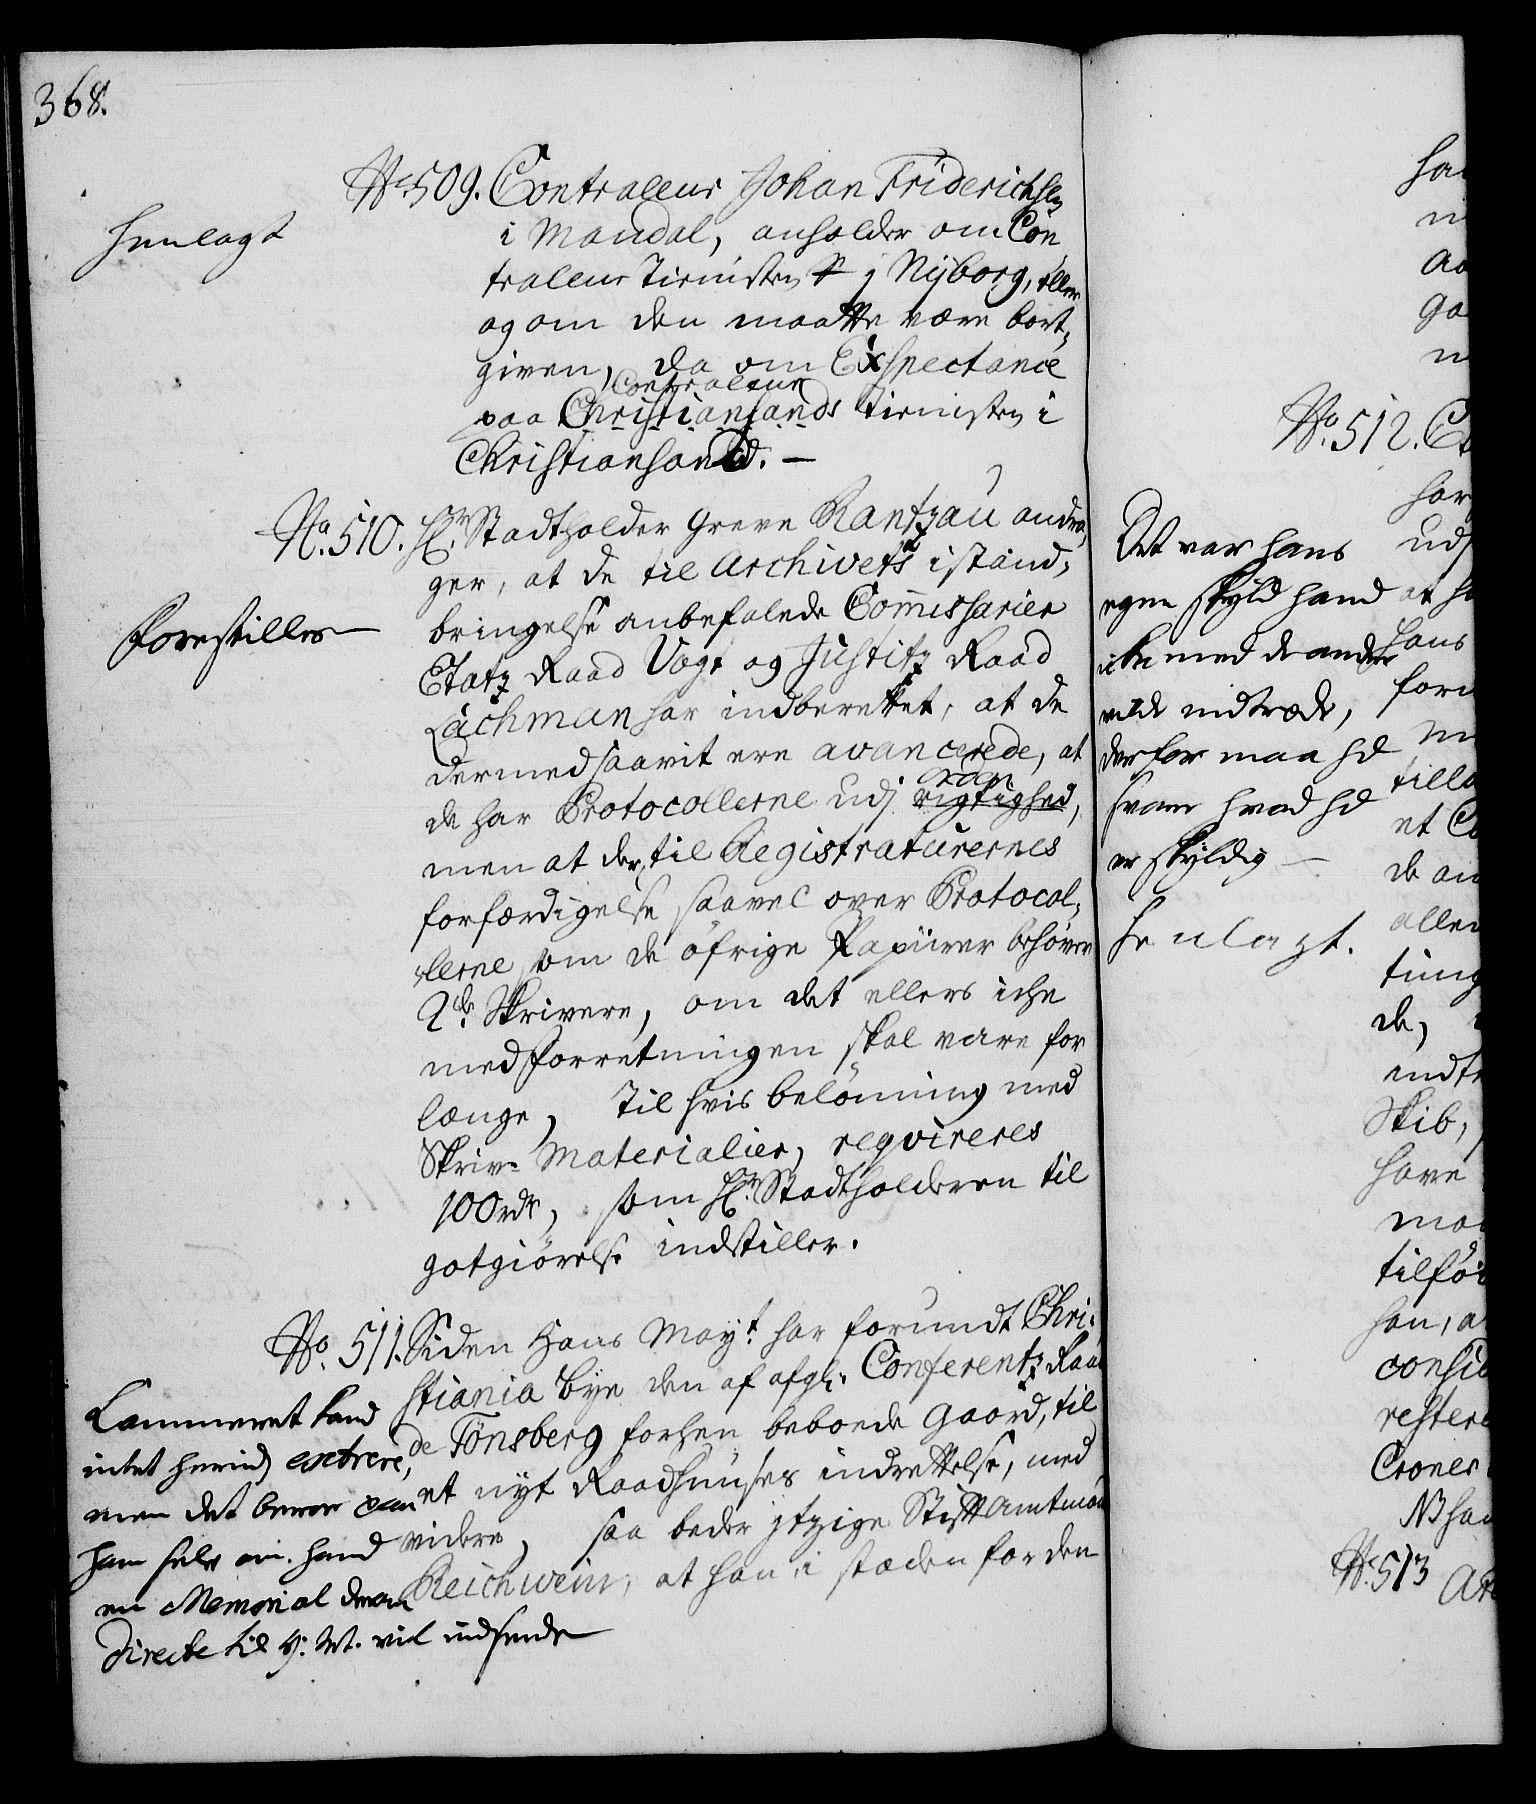 368.
No 509. Contraleur Johan Friderichsen
i Mandal, anholder om Con
traleur Tienisten i Nyborg, eller
og om den maatte være bort-
given, da om Expectance
Contraleur
paa Christiansands Tienisten i
Christiansand. —
henlagt
No. 510. Hr. Stadtholder Greve Rantzau andra-
ger, at de til Archivets istand-
bringelse anbefalede Commissarier
Etatz Raad Vogt og Justitz Raad
Lachman har indberettet, at de
dermed saavit ere avancerede, at
de har Protocollerne udj rigtighed,
men at der til Registraturernes
forfærdigelse saavel over Protocol-
lerne som de øfrige Papiirer behøver
2de Skrivere, om det ellers iche
med forretningen skal vare for
længe, Til hvis belønning med
Skriv- Materialier, reqvireres
100 rdr, som Hr. Stadtholderen til
gotgiørelse indstiller.
Forestilles
No. 511. Siden Hans Mayt. har forundt Chri-
stiania Bye den af afgl. Conferentz Raad
de Tønsberg forhen beboede Gaard, til
et nyt Raadhuuses indrettelse, med
videre, saa beder itzige Stiftamtmand
Reichwein, at han i stæden for den
Cammeret kand
intet herind extrere,
men det beroer paa
ham selv om hand
en Memorial derom
directe til H. M. vil indsende
No. 512.
Det var hans
egen skyld hand
icke med de andre
vilde indtræde,
derfor maa hd
svare hvad hd
er skyldig —
henlagt.
de,
Skib,
have
No. 513